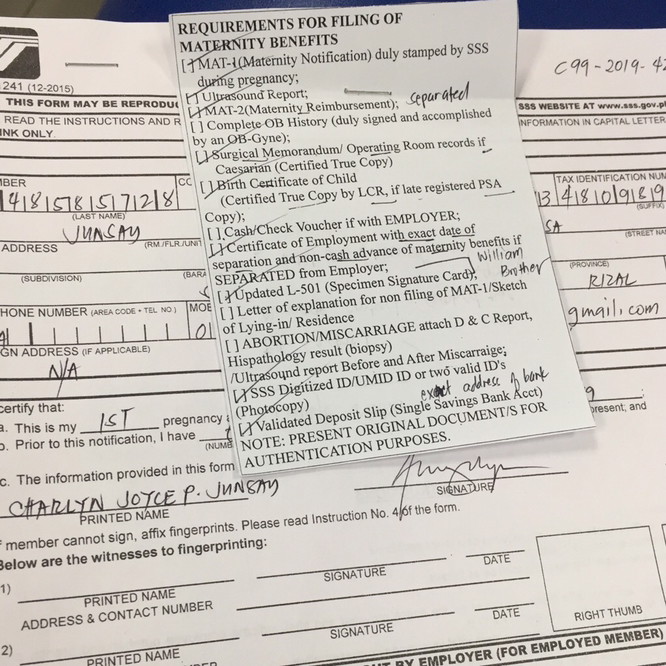 REQUIREMENTS FOR FILING OF
MATERNITY BENEFITS
[ ] MAT-1(Maternity Notification) duly stamped by SSS
during pregnancy;
[ ] Ultrasound Report;
[ ] MAT-2(Maternity Reimbursement); separated
[ ] Complete OB History (duly signed and accomplished
by an OB-Gyne);
[ ] Surgical Memorandum/ Operating Room records if
Caesarian (Certified True Copy)
[ ] Birth Certificate of Child
(Certified True Copy by LCR, if late registered PSA
Copy);
[ ] Cash/Check Voucher if with EMPLOYER;
[ ] Certificate of Employment with exact date of
separation and non-cash advance of maternity benefits if
SEPARATED from Employer;
William
Brother
[ ] Updated L-501 (Specimen Signature Card),
[ ] Letter of explanation for non filing of MAT-1/Sketch
of Lying-in/ Residence
[ ] ABORTION/MISCARRIAGE attach D & C Report,
Hispathology result (biopsy)
/Ultrasound report Before and After Miscarraige;
[ ] SSS Digitized ID/UMID ID or two valid ID's
(Photocopy)
exact address of bank
[ ] Validated Deposit Slip (Single Savings Bank Acct)
NOTE: PRESENT ORIGINAL DOCUMENT/S FOR
AUTHENTICATION PURPOSES.
C99-2019-42
241 (12-2015)
THIS FORM MAY BE REPRODU
SSS WEBSITE AT www.sss.gov.p
READ THE INSTRUCTIONS AND
INK ONLY.
INFORMATION IN CAPITAL LETTER
TAX IDENTIFICATION NUM
(LAST NAME)
(SUFFIX)
JUNSAY
ADDRESS
(RM./FLR./UNIT
(STREET NA
(SUBDIVISION)
(BARA
(PROVINCE)
RIZAL
PHONE NUMBER (AREA CODE + TEL NO.)
gmail.com
GN ADDRESS (IF APPLICABLE)
N/A
certify that:
a. This is my 1ST pregnancy
present; and
b. Prior to this notification, I have
(NUMB
c. The information provided in this form
CHARLYN JOYCE P. JUNSAY
PRINTED NAME
SIGNATURE
f member cannot sign, affix fingerprints. Please read Instruction No. 4 of the form.
Below are the witnesses to fingerprinting:
1)
PRINTED NAME
SIGNATURE
DATE
ADDRESS & CONTACT NUMBER
RIGHT THUMB
2)
PRINTED NAME
SIGNATURE
DATE
BY EMPLOYER (FOR EMPLOYED MEMBER)